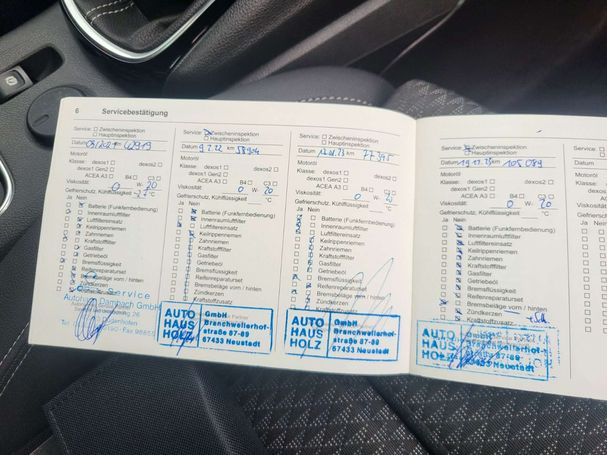 6 Servicebestätigung
Service: Zwischeninspektion
Hauptinspektion
Datum 09/2021 km 42919
Motoröl
Klasse: dexos1 dexos2
dexos1 Gen2
ACEA A3 B4 C3
Viskosität: 0 W- 20
Gefrierschutz, Kühlflüssigkeit
°C
Ja Nein
Batterie (Funkfernbedienung)
Innenraumluftfilter
Luftfiltereinsatz
Keilrippenriemen
Zahnriemen
Kraftstofffilter
Gasfilter
Getriebeöl
Bremsflüssigkeit
Reifenreparaturset
Bremsbeläge vorn / hinten
Zündkerzen
Service
Autohaus Dambach GmbH
Service: Zwischeninspektion
Hauptinspektion
Datum 9.2.22 km 58904
Motoröl
Klasse: dexos1 dexos2
dexos1 Gen2
ACEA A3 B4 C3
Viskosität: 0 W- 20
Gefrierschutz, Kühlflüssigkeit
°C
Ja Nein
Batterie (Funkfernbedienung)
Innenraumluftfilter
Luftfiltereinsatz
Keilrippenriemen
Zahnriemen
Kraftstofffilter
Gasfilter
Getriebeöl
Bremsflüssigkeit
Reifenreparaturset
Bremsbeläge vorn / hinten
Zündkerzen
Kraftstoffzusatz
AUTO HAUS HOLZ
GmbH
Branchweilerhof-
straße 87-89
67433 Neustadt
Service: Zwischeninspektion
Hauptinspektion
Datum km
Motoröl
Klasse: dexos1 dexos2
dexos1 Gen2
ACEA A3 B4 C3
Viskosität: 0 W- 20
Gefrierschutz, Kühlflüssigkeit
°C
Ja Nein
Batterie (Funkfernbedienung)
Innenraumluftfilter
Luftfiltereinsatz
Keilrippenriemen
Zahnriemen
Kraftstofffilter
Gasfilter
Getriebeöl
Bremsflüssigkeit
Reifenreparaturset
Bremsbeläge vorn / hinten
Zündkerzen
Kraftstoffzusatz
AUTO HAUS HOLZ
GmbH
Branchweilerhof-
straße 87-89
67433 Neustadt
Service: Zwischeninspektion
Hauptinspektion
Datum km 105 089
Motoröl
Klasse: dexos1 dexos2
dexos1 Gen2
ACEA A3 B4 C3
Viskosität: 0 W- 20
Gefrierschutz, Kühlflüssigkeit
°C
Ja Nein
Batterie (Funkfernbedienung)
Innenraumluftfilter
Luftfiltereinsatz
Keilrippenriemen
Zahnriemen
Kraftstofffilter
Gasfilter
Getriebeöl
Bremsflüssigkeit
Reifenreparaturset
Bremsbeläge vorn / hinten
Zündkerzen
Kraftstoffzusatz
AUTO HAUS HOLZ
GmbH
Branchweilerhof-
straße 87-89
67433 Neustadt
Service:
Datum
Motoröl
Klasse:
Viskosität
Gefrierschutz
Ja Nein